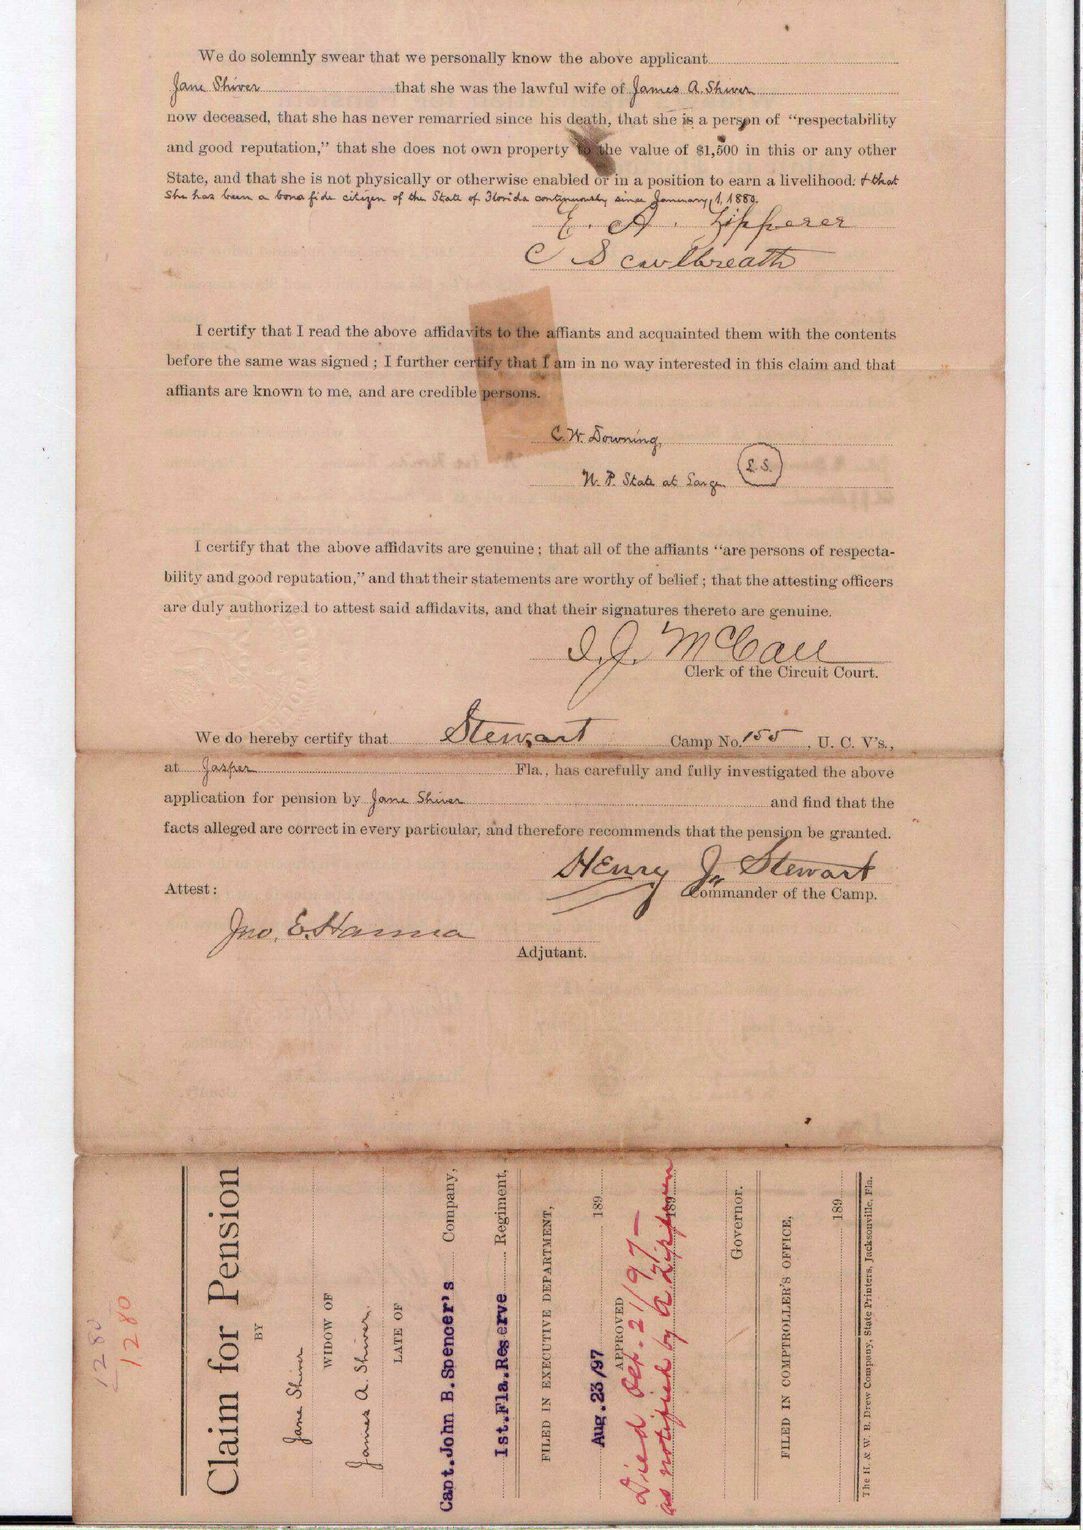 We do solemnly swear that we personally know the above applicant
Jane Shiver that she was the lawful wife of James A. Shiver
now deceased, that she has never remarried since his death, that she is a person of “respectability
and good reputation,” that she does not own property to the value of $1,500 in this or any other
State, and that she is not physically or otherwise enabled or in a position to earn a livelihood. & that
she has been a bona fide citizen of the State of Florida continuously since January, 1, 1880.
E. A. Zipperer
C S Cawlbreath
I certify that I read the above affidavits to the affiants and acquainted them with the contents
before the same was signed ; I further certify that I am in no way interested in this claim and that
affiants are known to me, and are credible persons.
C. W. Downing,
N. P. State at Large L.S.
I certify that the above affidavits are genuine ; that all of the affiants “are persons of respecta-
bility and good reputation,” and that their statements are worthy of belief ; that the attesting officers
are duly authorized to attest said affidavits, and that their signatures thereto are genuine.
I. J. McCall
Clerk of the Circuit Court.
We do hereby certify that Stewart Camp No. 155, U. C. V’s.,
at Jasper Fla., has carefully and fully investigated the above
application for pension by Jane Shiver and find that the
facts alleged are correct in every particular, and therefore recommends that the pension be granted.
Henry J. Stewart
Commander of the Camp.
Attest :
Jno. E. Hanna
Adjutant.
1280
1280
Claim for Pension
BY
Jane Shiver
WIDOW OF
James A. Shiver.
LATE OF
Capt. John B. Spencer's Company,
1st. Fla. Reserve Regiment,
FILED IN EXECUTIVE DEPARTMENT,
Aug. 23/97 189
APPROVED
Died 21/97—
as notified by A Zipperer
189
Governor.
FILED IN COMPTROLLER'S OFFICE,
189
The H. & W. B. Drew Company, State Printers, Jacksonville, Fla.